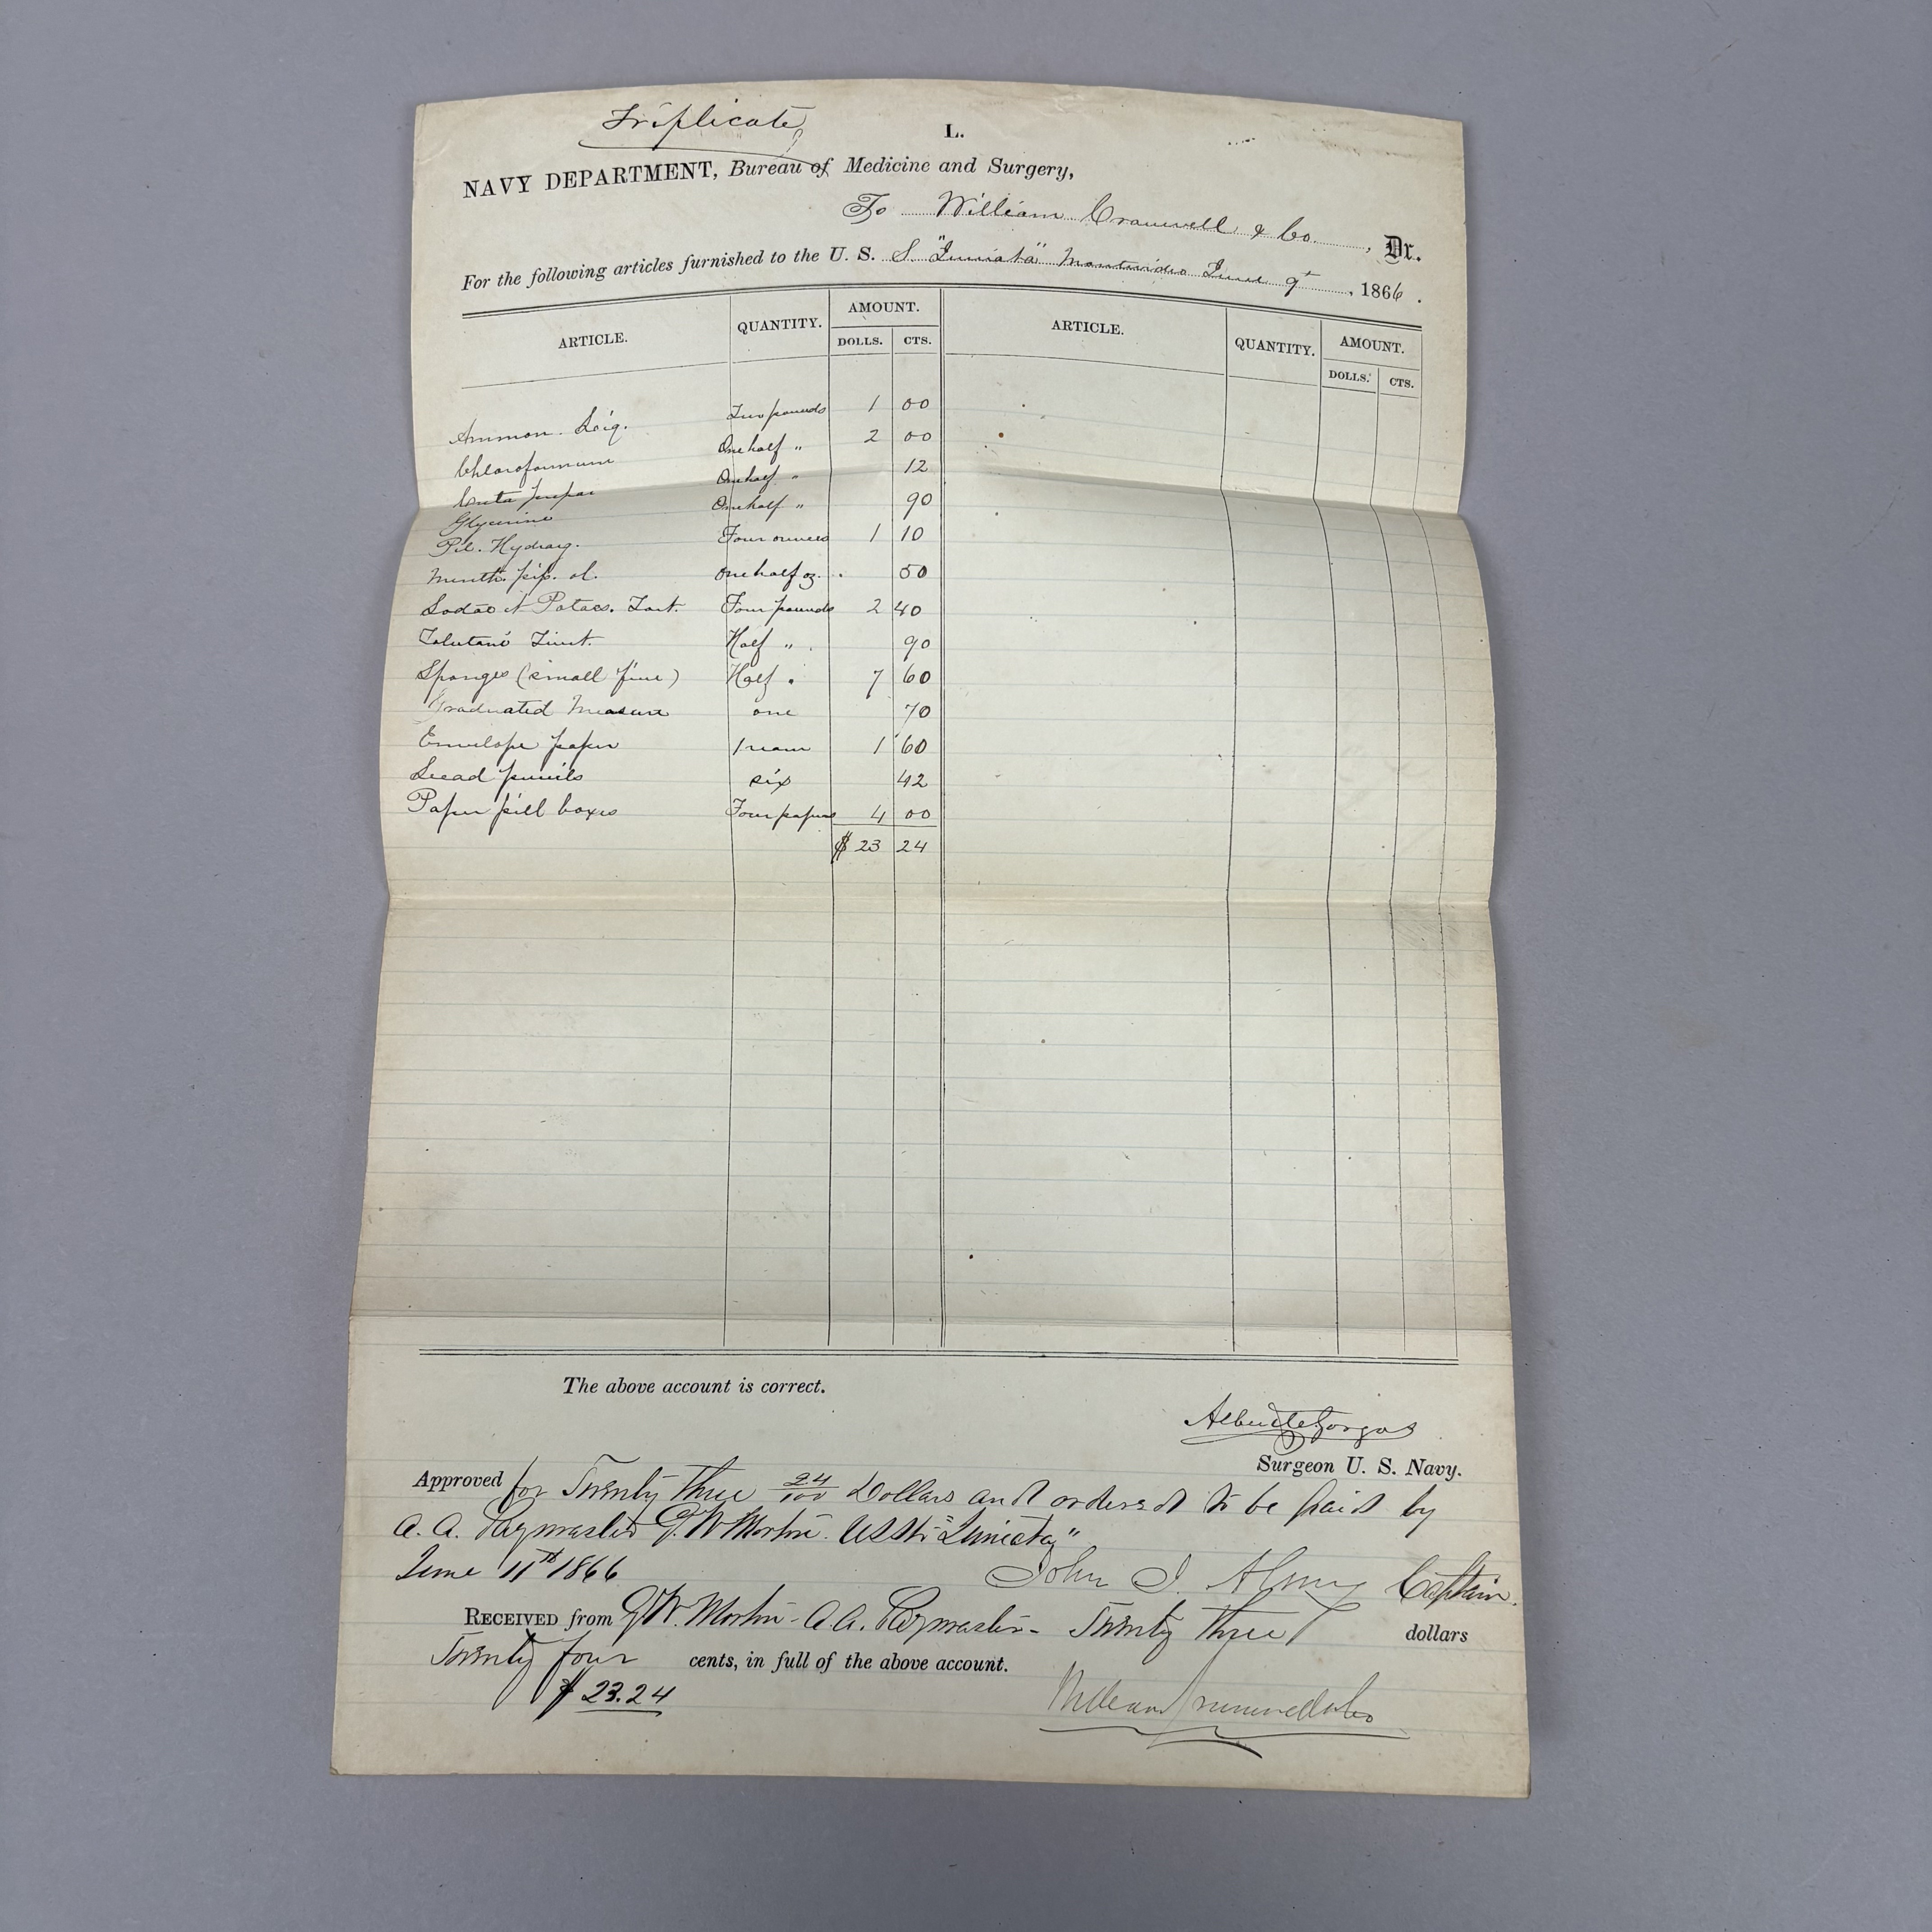 Triplicate
L.
NAVY DEPARTMENT, Bureau of Medicine and Surgery,
To William Cranwell & Co. , Dr.
For the following articles furnished to the U. S. S. "Juniata" Montevideo June 9th , 1866 .
ARTICLE. QUANTITY. AMOUNT. ARTICLE. QUANTITY. AMOUNT.
DOLLS. CTS. DOLLS. CTS.
Ammon. Liq. Two pounds 1 00
Chloroformum One half " 2 00
Creta prepar One half " 12
Glycerine One half " 90
Pil. Hydrarg. Four ounces 1 10
Menth. pip. ol. One half oz. 50
Sodae et Potass. Tart. Four pounds 2 40
Tolutani Tinct. Half " 90
Sponges (small fine) Half " 7 60
Graduated Measure one 70
Envelope paper 1 ream 1 60
Lead pencils six 42
Paper pill boxes Four papers 4 00
$ 23 24
The above account is correct.
Albert C. Gorgas
Surgeon U. S. Navy.
Approved for Twenty three 24/100 Dollars and ordered to be paid by
A. A. Paymaster G. W. Morton. USStr "Juniata"
June 11th 1866
John J. Almy Captain.
RECEIVED from G. W. Morton - A. A. Paymaster - Twenty three dollars
Twenty four cents, in full of the above account.
$ 23.24
William Cranwell & Co